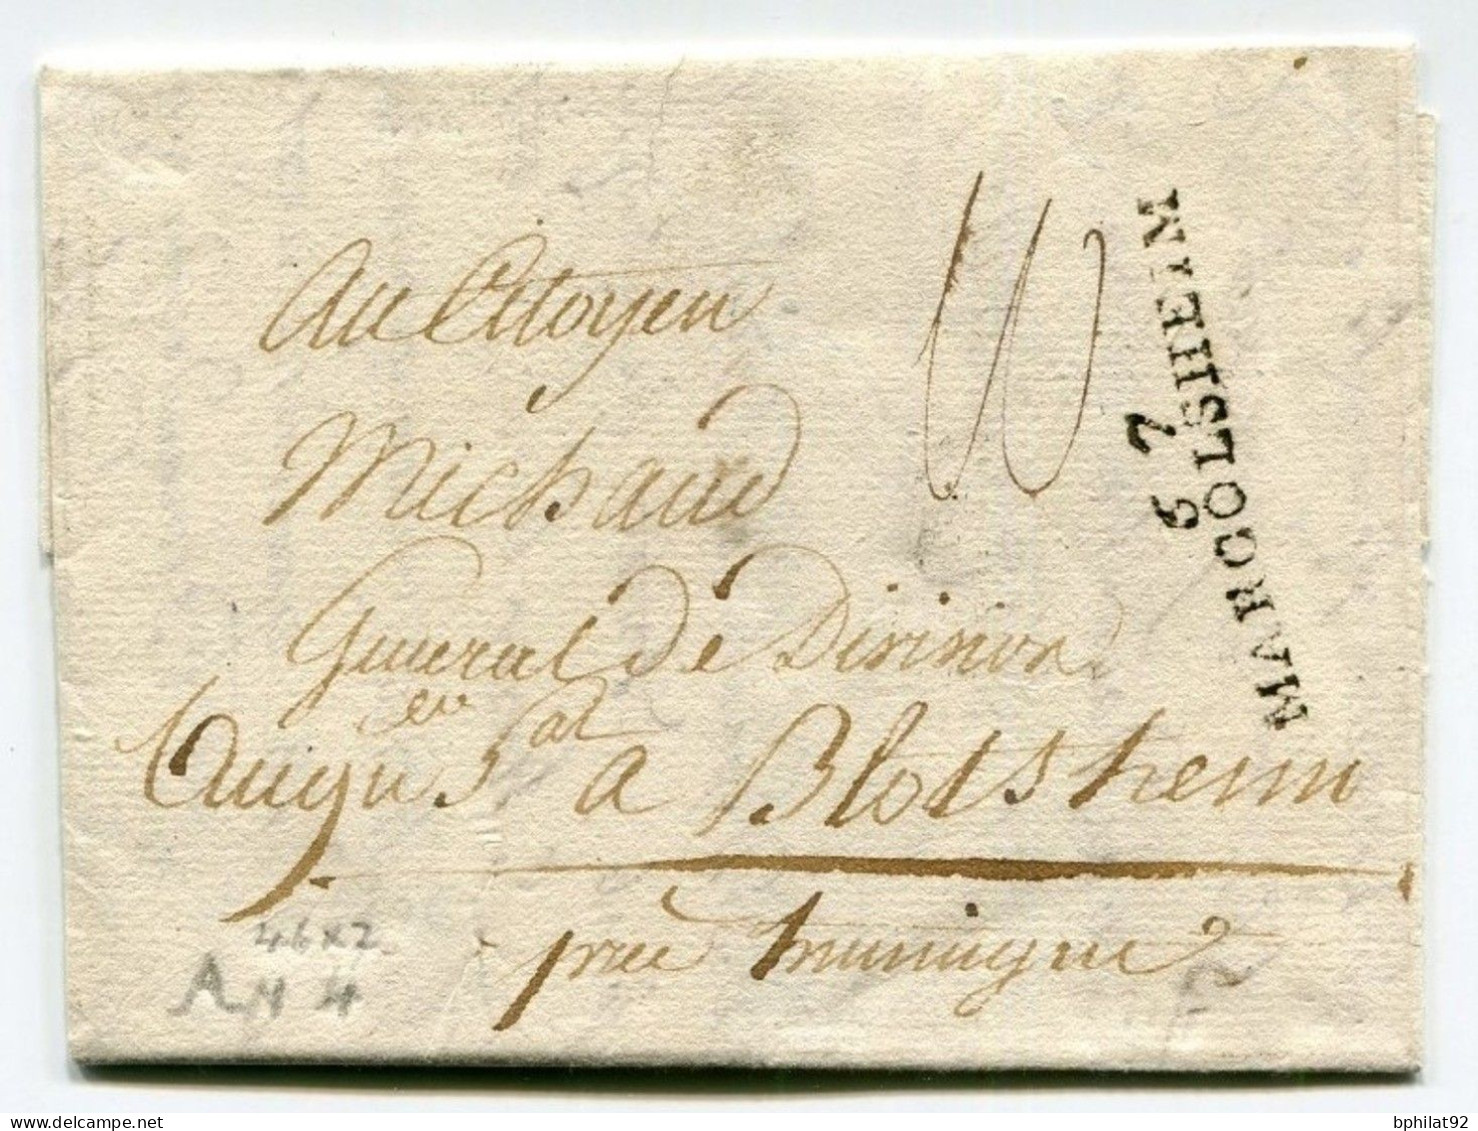 Au Citoyen
Michaud
General De Division
en
a
à Blotsheim
prée hunnigue
10
67
MARCOLSHEIM
46x2
A 4 4
bphilat92